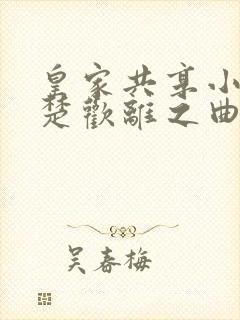 皇家共享小
楚歡離之曲
吴春梅